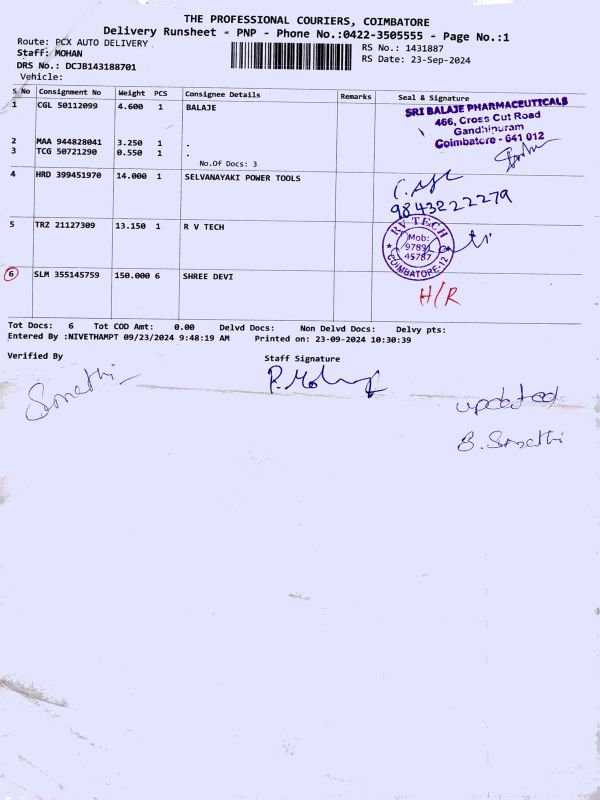 THE PROFESSIONAL COURIERS, COIMBATORE
Delivery Runsheet - PNP - Phone No.:0422-3505555 - Page No.:1
Route: PCX AUTO DELIVERY
RS No.: 1431887
Staff: MOHAN
RS Date: 23-Sep-2024
DRS No.: DCJB143188701
Vehicle:
S No Consignment No Weight PCS Consignee Details Remarks Seal & Signature
1 CGL 50112099 4.600 1 BALAJE
SRI BALAJE PHARMACEUTICALS
466, Cross Cut Road
Gandhipuram
Coimbatore - 641 012
2 MAA 944828041 3.250 1 .
3 TCG 50721290 0.550 1 .
No.Of Docs: 3
4 HRD 399451970 14.000 1 SELVANAYAKI POWER TOOLS
9843222279
5 TRZ 21127309 13.150 1 R V TECH
RV TECH
Mob:
97891
45787
COIMBATORE-12
6 SLM 355145759 150.000 6 SHREE DEVI
H/R
Tot Docs: 6 Tot COD Amt: 0.00 Delvd Docs: Non Delvd Docs: Delvy pts:
Entered By :NIVETHAMPT 09/23/2024 9:48:19 AM Printed on: 23-09-2024 10:30:39
Verified By Staff Signature
updated